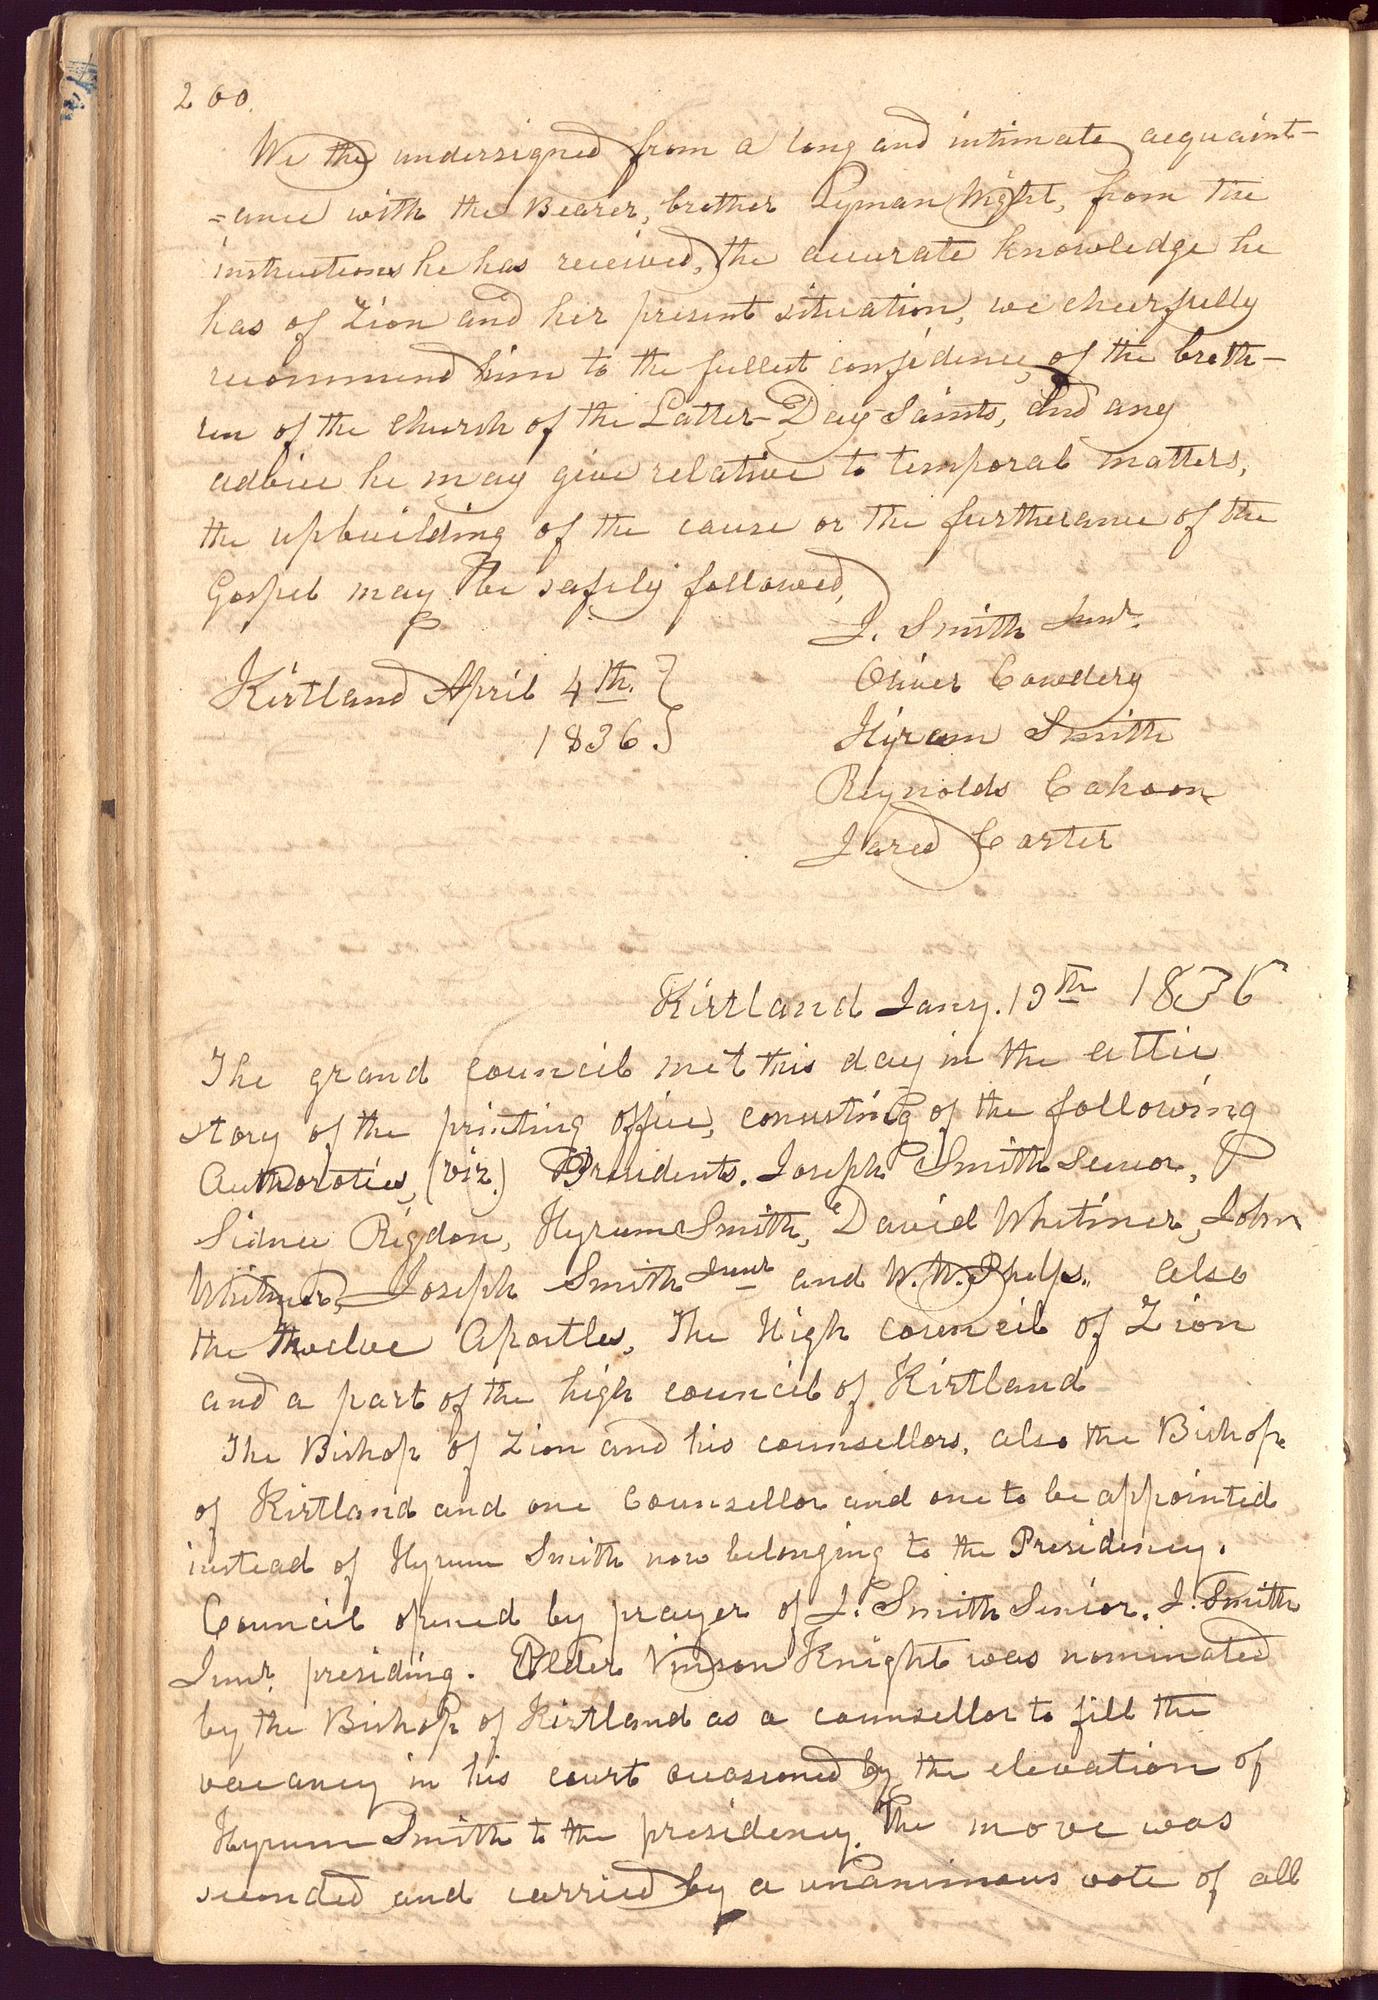 200.
We the undersigned from a long and intimate acquaint-
=ance with the Bearer, brother Lyman Wight, from the
instructions he has received, the accurate knowledge he
has of Zion and her present situation, we cheerfully
recommend him to the fullest confidence, of the breth-
ren of the church of the Latter-Day-Saints, and any
advice he may give relative to temporal matters,
the upbuilding of the cause or the furtherance of the
Gospel may be safely followed,
J. Smith Junr.
Kirtland April 4th. }
1836 }
Oliver Cowdery
Hyram Smith
Reynolds Cahoon
Jared Carter
Kirtland Jany. 13th 1836
The grand council met this day in the attic
story of the printing office, consisting of the following
Authoroties, (viz.) Presidents. Joseph Smith Senior,
Sidnee Rigdon, Hyrum Smith, David Whitmer, John
Whitmer, Joseph Smith Junr and W. W. Phelps. also
the twelve Apostles, The High council of Zion
and a part of the high council of Kirtland
The Bishop of Zion and his counsellors, also the Bishop
of Kirtland and one Counsellor and one to be appointed
instead of Hyrum Smith now belonging to the Presidency.
Council opened by prayer of J. Smith Senior. J. Smith
Junr. presiding. Elder Vinson Knight was nominated
by the Bishop of Kirtland as a counsellor to fill the
vacancy in his court occasioned by the elevation of
Hyrum Smith to the presidency. The move was
seconded and carried by a unanimous vote of all